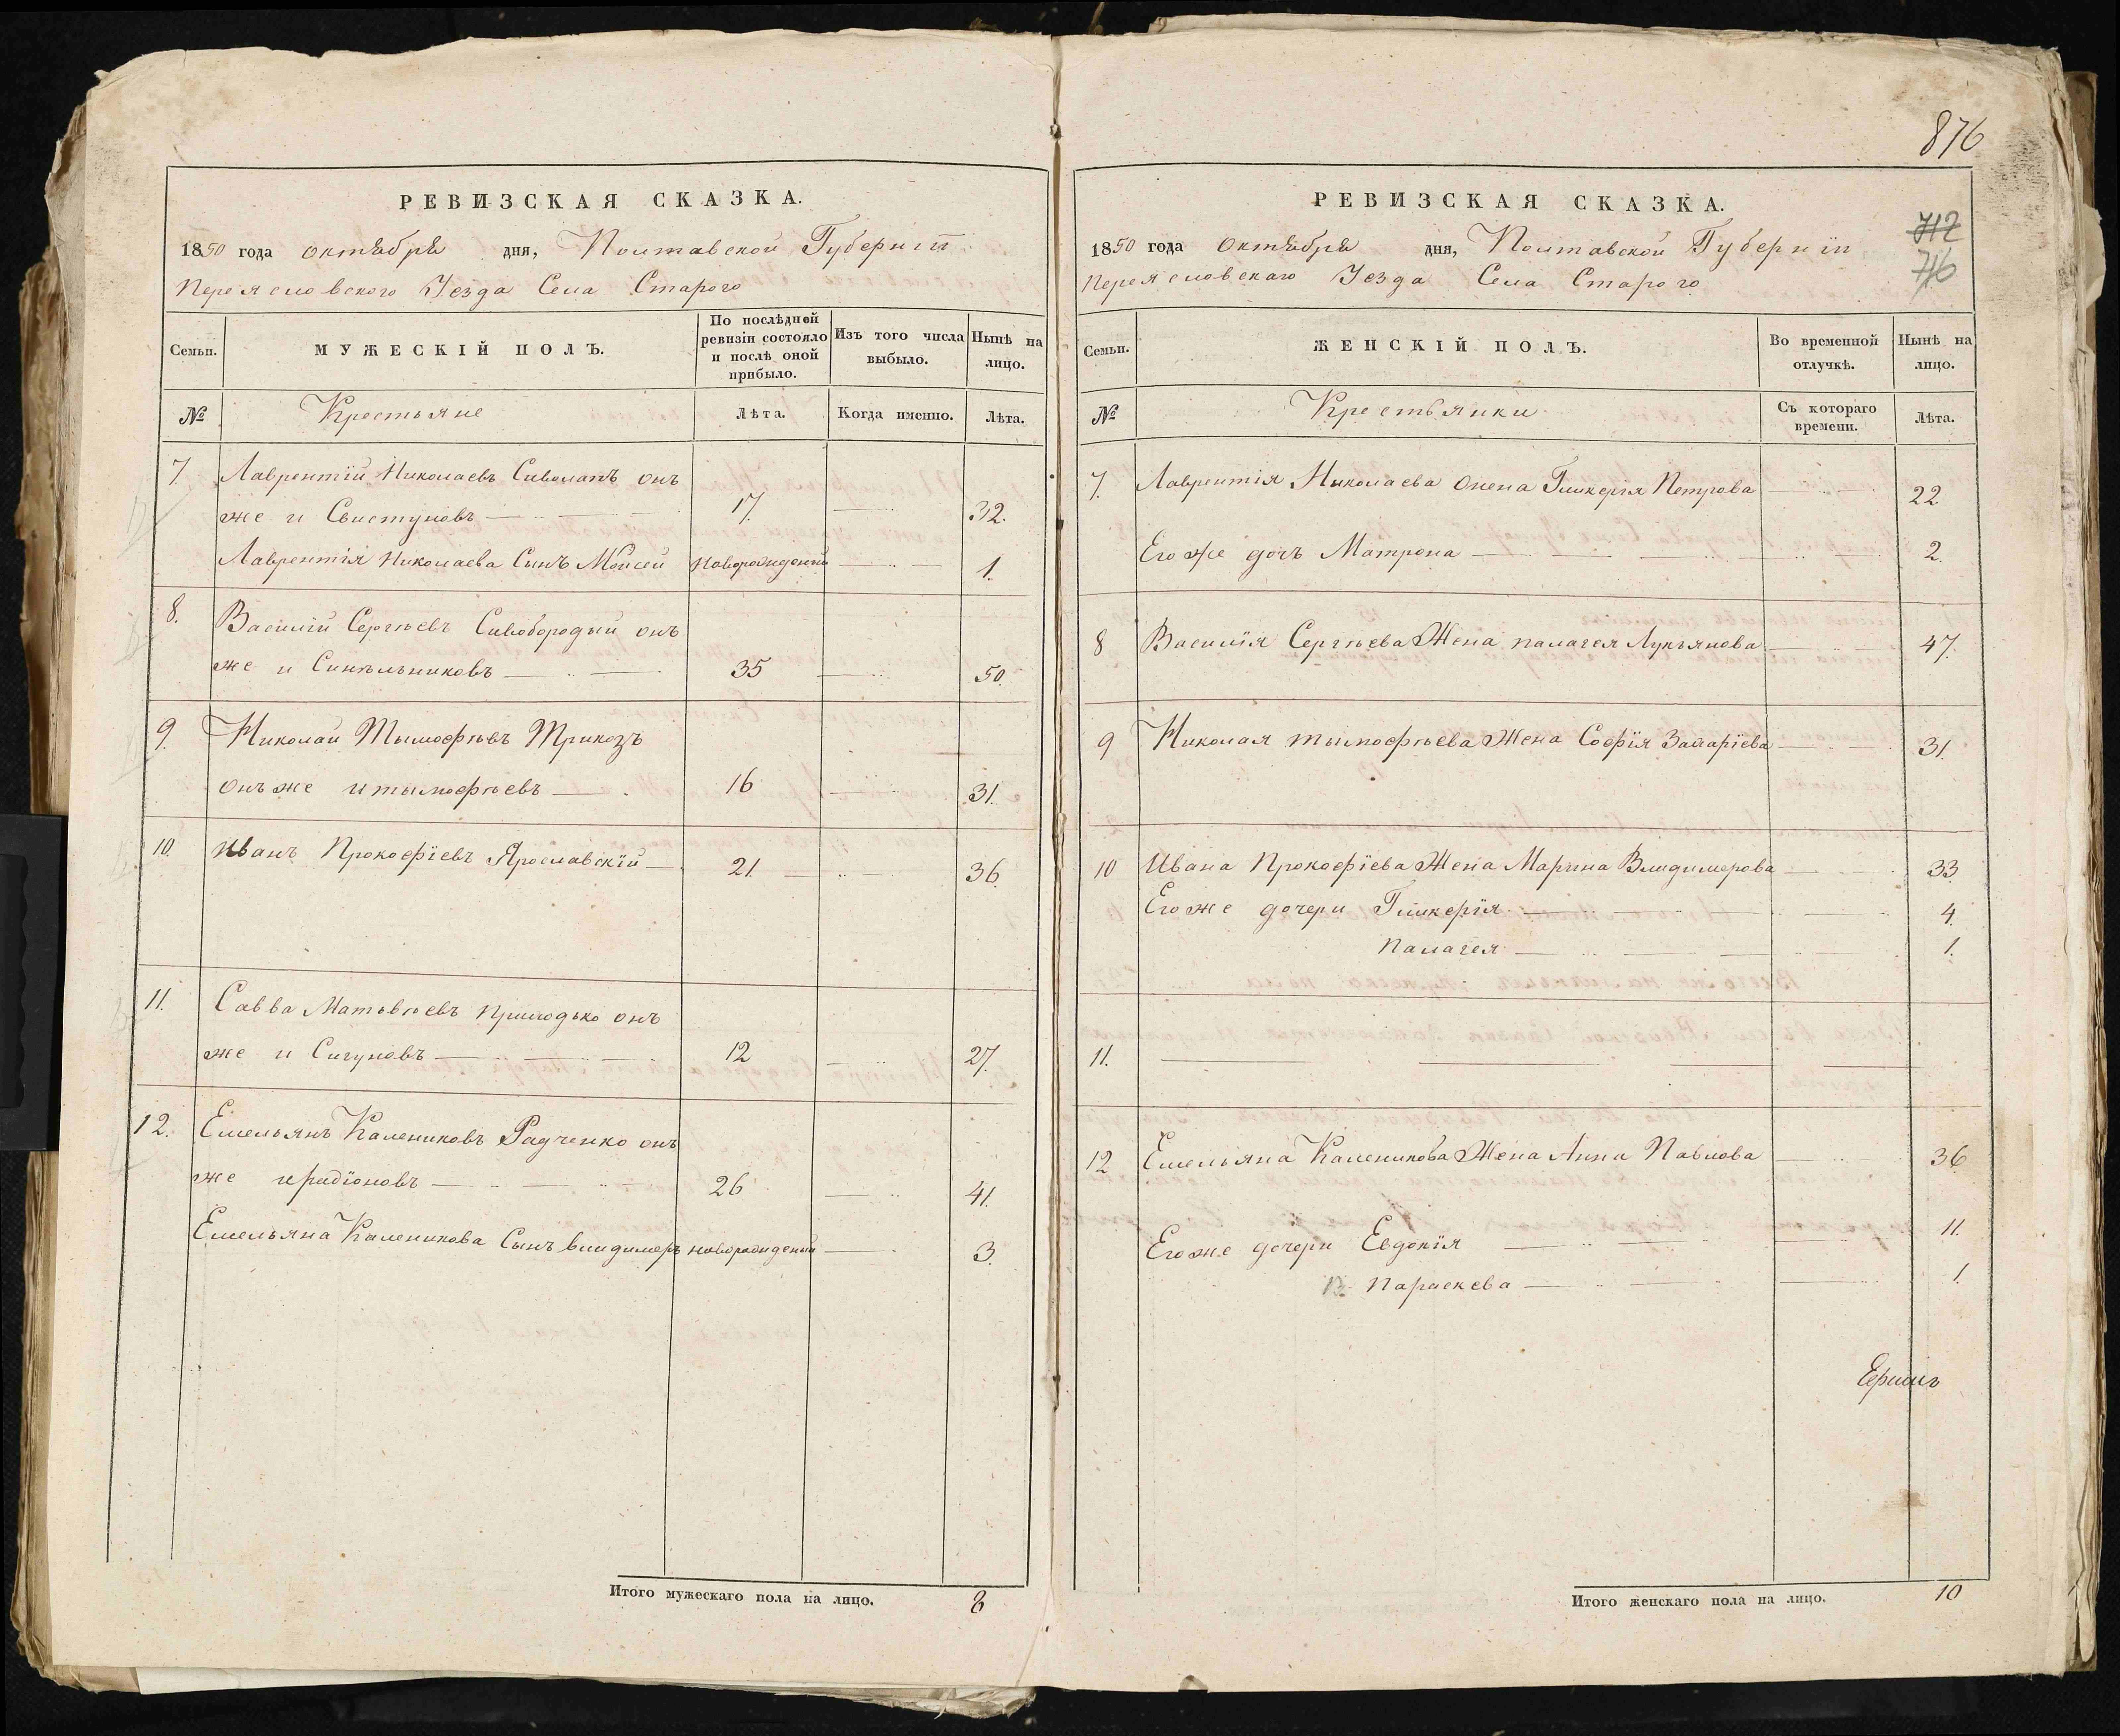 876
РЕВИЗСКАЯ СКАЗКА.
1850 года октября дня, Полтавской Губерніи
Переясловского Уезда Села Старого
Семьи.
МУЖЕСКІЙ ПОЛЪ.
По послѣдней ревизіи состояло и послѣ оной прибыло.
Изъ того числа выбыло.
Нынѣ на лицо.
№
Крестьяне
Лѣта.
Когда именно.
Лѣта.
7 Лаврентій Николаевъ Сиволапъ онъ
же и Свистуновъ 17. 32.
Лаврентія Николаева Сынъ Моисей новорожденый 1.
8. Василій Сергѣевъ Сивобородый онъ
же и Синѣльниковъ 35 50.
9. Николай Тымофѣевъ Трикозъ
онъ же и тымофѣевъ 16 31.
10. Иванъ Прокофіевъ Ярославскій 21. 36.
11. Савва Матвѣевъ Приходько онъ
же и Сигуновъ 12 27.
12. Емельянъ Калениковъ Радченко онъ
же иродіоновъ 26 41.
Емельяна Каленикова Сынъ владимеръ новорожденый 3.
Итого мужескаго пола на лицо. 8
РЕВИЗСКАЯ СКАЗКА.
1850 года октября дня, Полтавской Губерніи
Переясловскаго Уезда Села Старого
712
716
Семьи.
ЖЕНСКІЙ ПОЛЪ.
Во временной отлучкѣ.
Нынѣ на лицо.
№
Крестьянки
Съ котораго времени.
Лѣта.
7. Лаврентія Николаева жена Гликерія Петрова 22
Его же дочь Матрона 2.
8 Василія Сергѣева Жена палагея Лукъянова 47.
9 Николая тымофѣева Жена Софія Захаріева 31.
10 Ивана Прокофіева Жена Марина Владимерова 33
Его же дочери Гликерія 4.
Палагея 1.
11.
12 Емельяна Каленикова Жена Анна Павлова 36
Его же дочери Евдокія 11.
Параскева 1.
Итого женскаго пола на лицо. 10